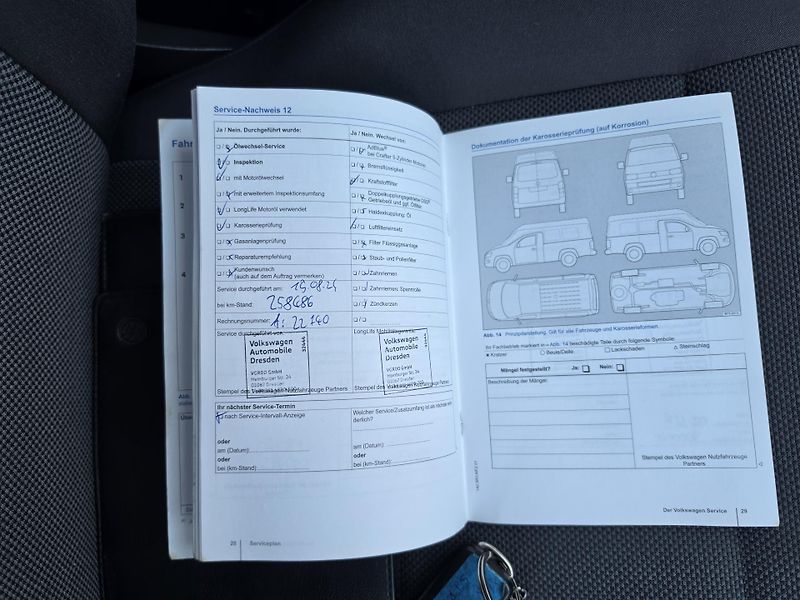 Fahr
1
2
3
4
Abb.
Service-Nachweis 12
Ja / Nein. Durchgeführt wurde:
Ölwechsel-Service
Inspektion
mit Motorölwechsel
mit erweitertem Inspektionsumfang
LongLife Motoröl verwendet
Karosserieprüfung
Gasanlagenprüfung
Reparaturempfehlung
Kundenwunsch
(auch auf dem Auftrag vermerken)
Service durchgeführt am:
bei km-Stand: 258486
Rechnungsnummer: A: 22 140
Service durchgeführt von:
Volkswagen
Automobile
Dresden
VGRDD GmbH
Hamburger Str. 24
Stempel des Volkswagen Nutzfahrzeuge Partners
Ihr nächster Service-Termin
nach Service-Intervall-Anzeige
oder
am (Datum):
oder
bei (km-Stand):
28 Serviceplan
Ja / Nein. Wechsel von:
AdBlue®
bei Crafter 5-Zylinder Motoren
Bremsflüssigkeit
Kraftstofffilter
Doppelkupplungsgetriebe DSG®:
Getriebeöl und ggf. Ölfilter
Haldexkupplung: Öl
Luftfiltereinsatz
Filter Flüssiggasanlage
Staub- und Pollenfilter
Zahnriemen
Zahnriemen: Spannrolle
Zündkerzen
Volkswagen
Automobile
Dresden
VGRDD GmbH
Hamburger Str. 24
Welcher Service/Zusatzumfang ist als nächster
derlich?
am (Datum):
oder
bei (km-Stand):
Dokumentation der Karosserieprüfung (auf Korrosion)
Abb. 14 Prinzipdarstellung. Gilt für alle Fahrzeuge und Karosserieformen.
Ihr Fachbetrieb markiert in Abb. 14 beschädigte Teile durch folgende Symbole:
Kratzer Beule/Delle Lackschaden Steinschlag
Mängel festgestellt? Ja: Nein:
Beschreibung der Mängel:
Stempel des Volkswagen Nutzfahrzeuge
Partners
Der Volkswagen Service 29